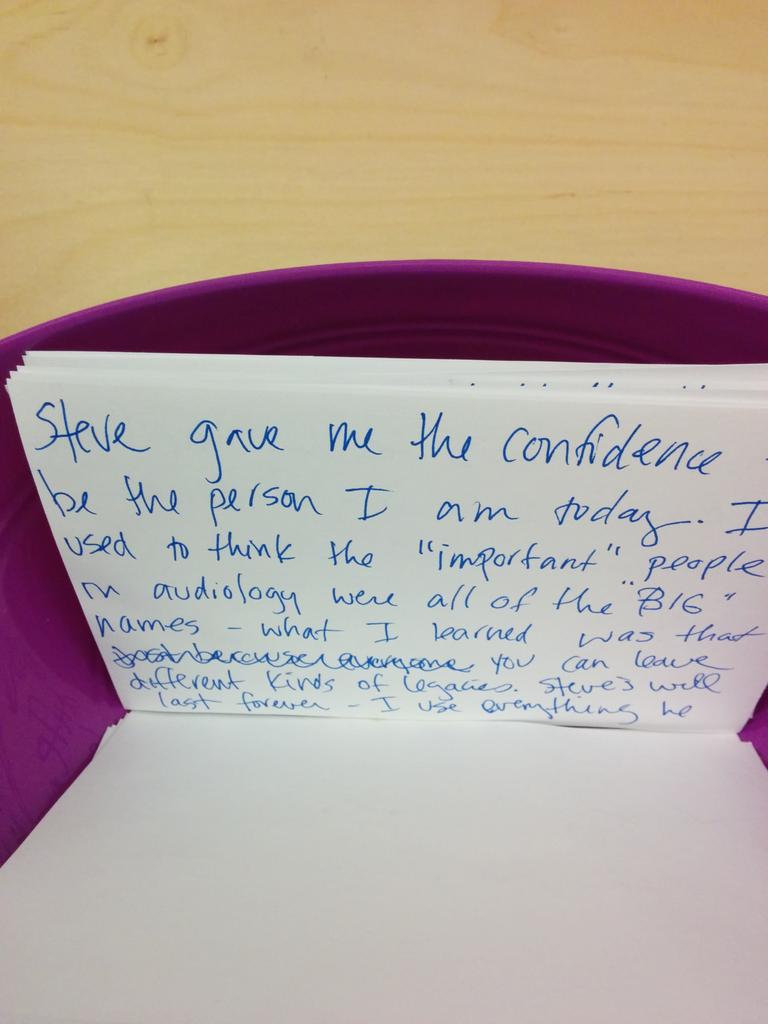 Steve gave me the confidence
be the person I am today. I
used to think the "important" people
in audiology were all of the "BIG"
names - what I learned was that
just because everyone you can leave
different kinds of legacies. Steve's will
last forever - I use everything he